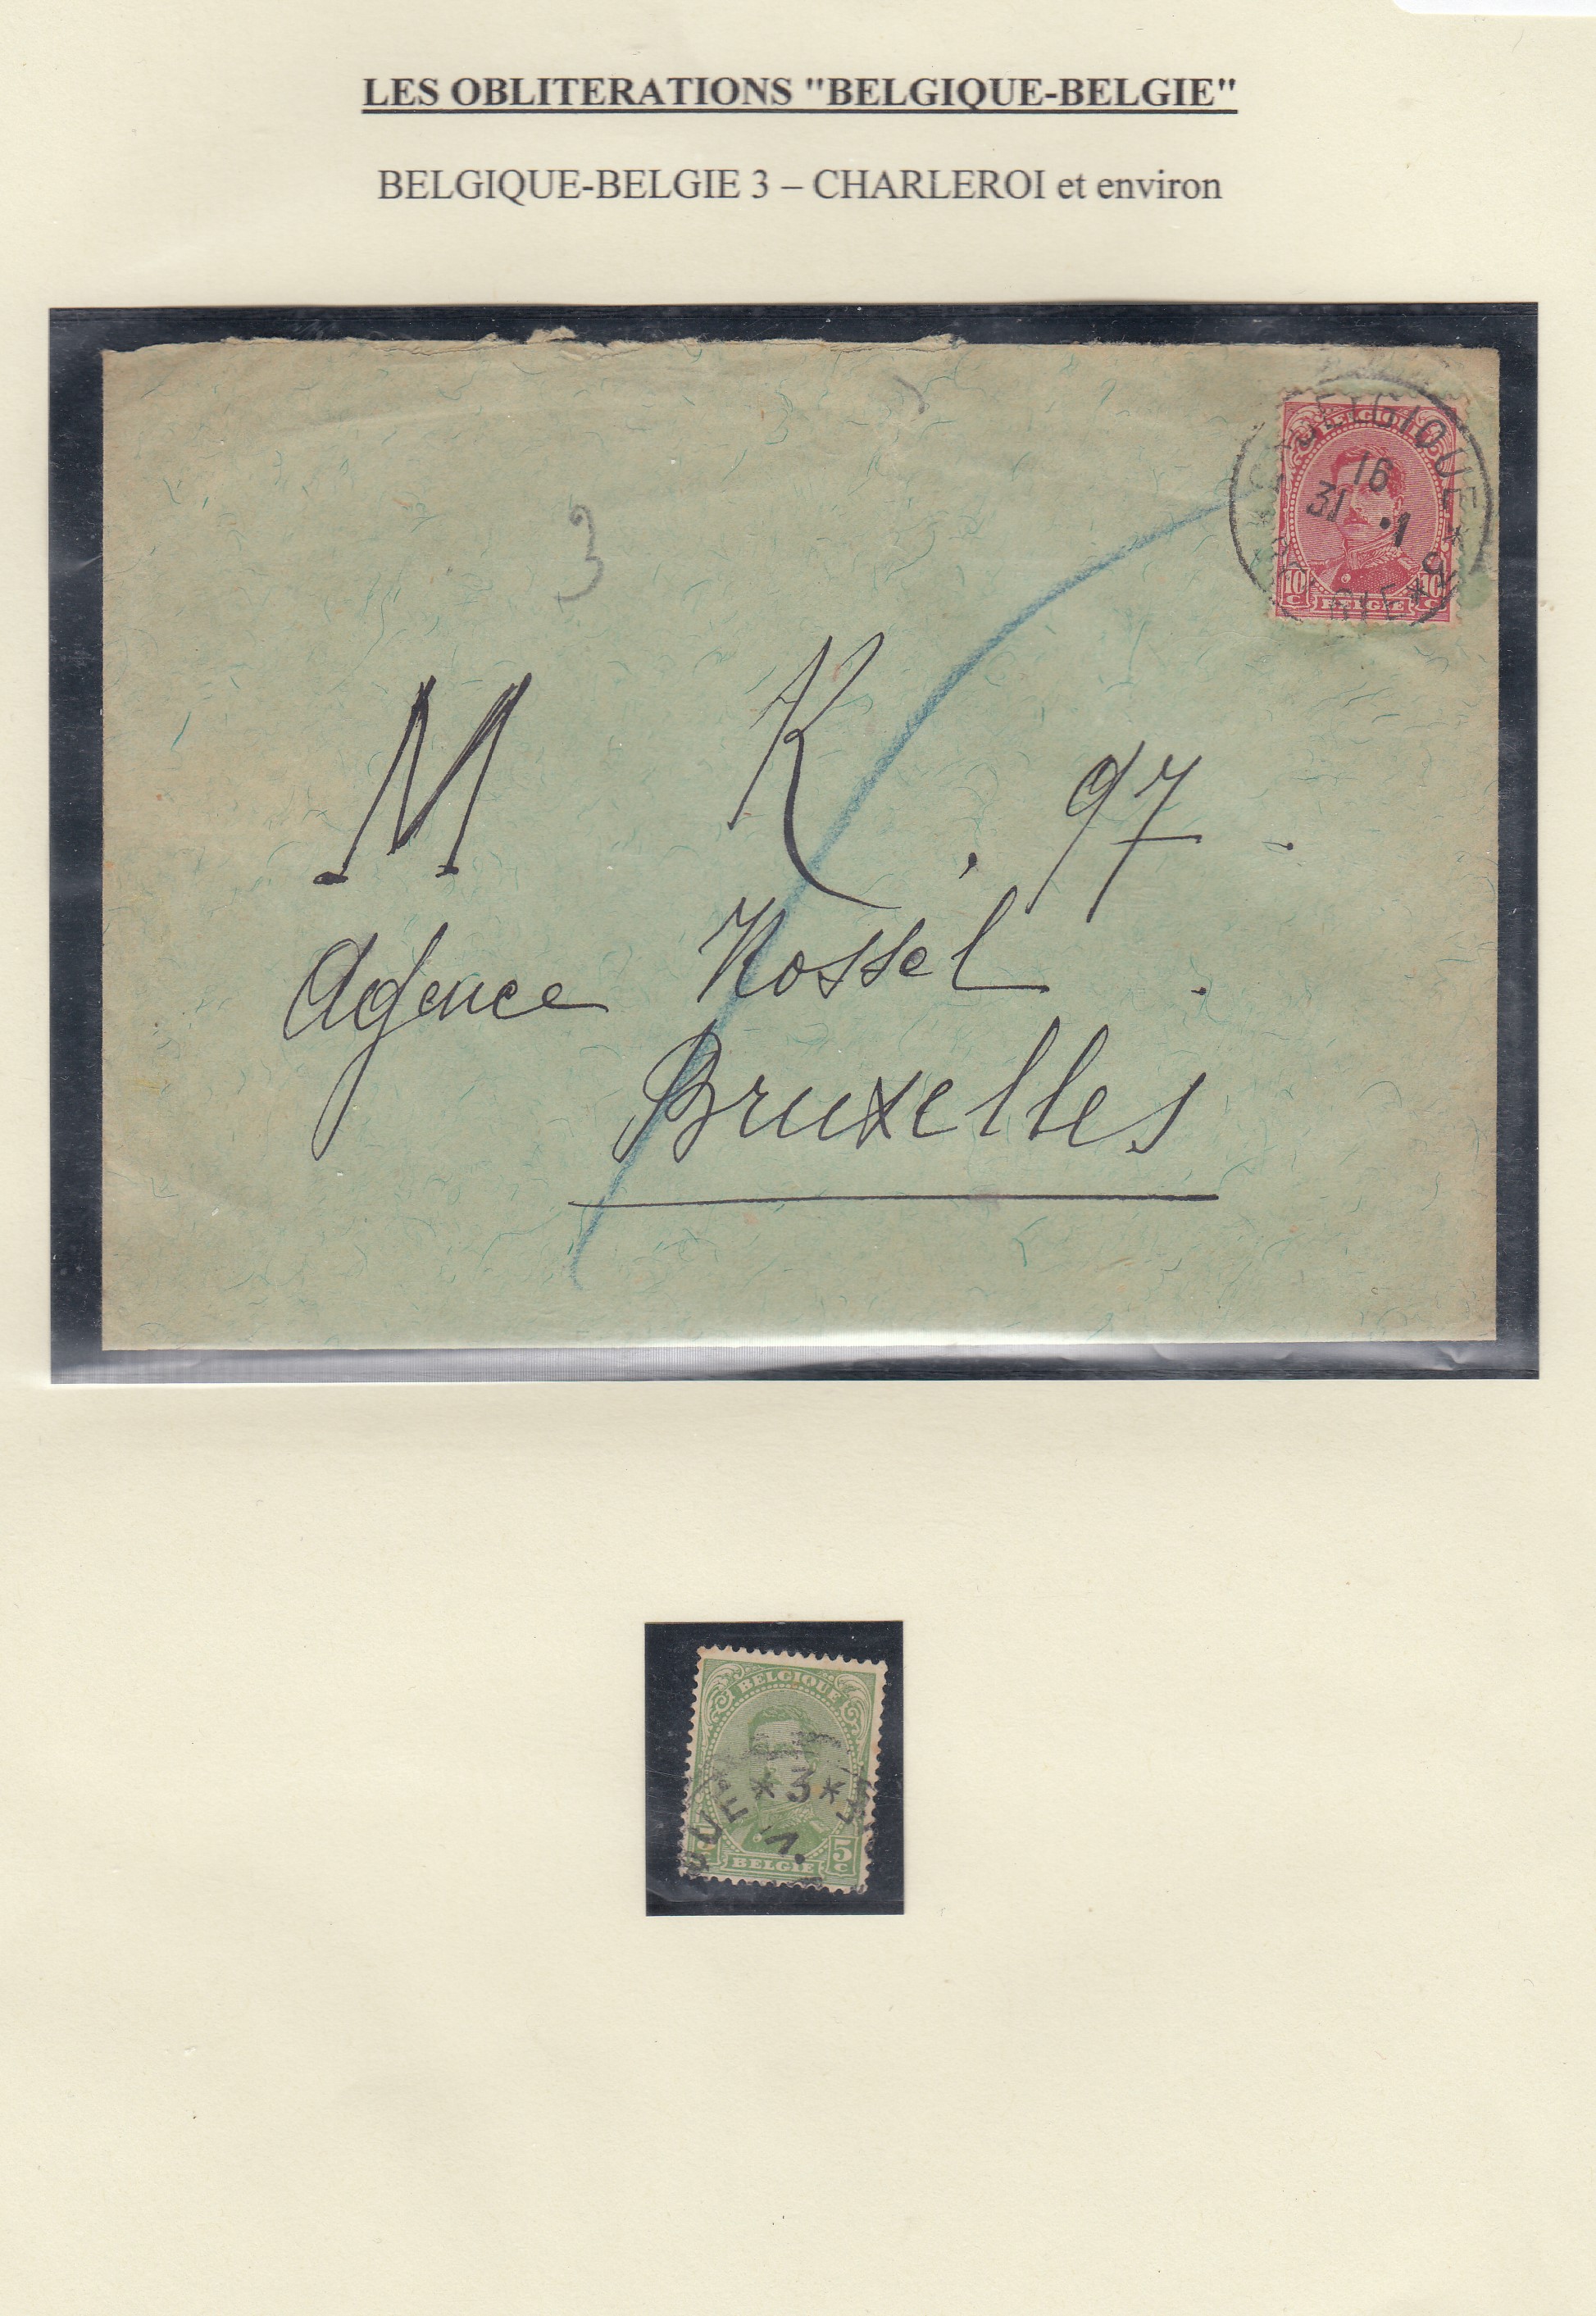 LES OBLITERATIONS "BELGIQUE-BELGIE"
BELGIQUE-BELGIE 3 – CHARLEROI et environ
BELGIQUE
16
31 .1
BELGIQUE
10 C BELGIE 10 C
3
M K. 97.
Agence Rossel.
Bruxelles
BELGIQUE
*3*
BELGIE 5 C